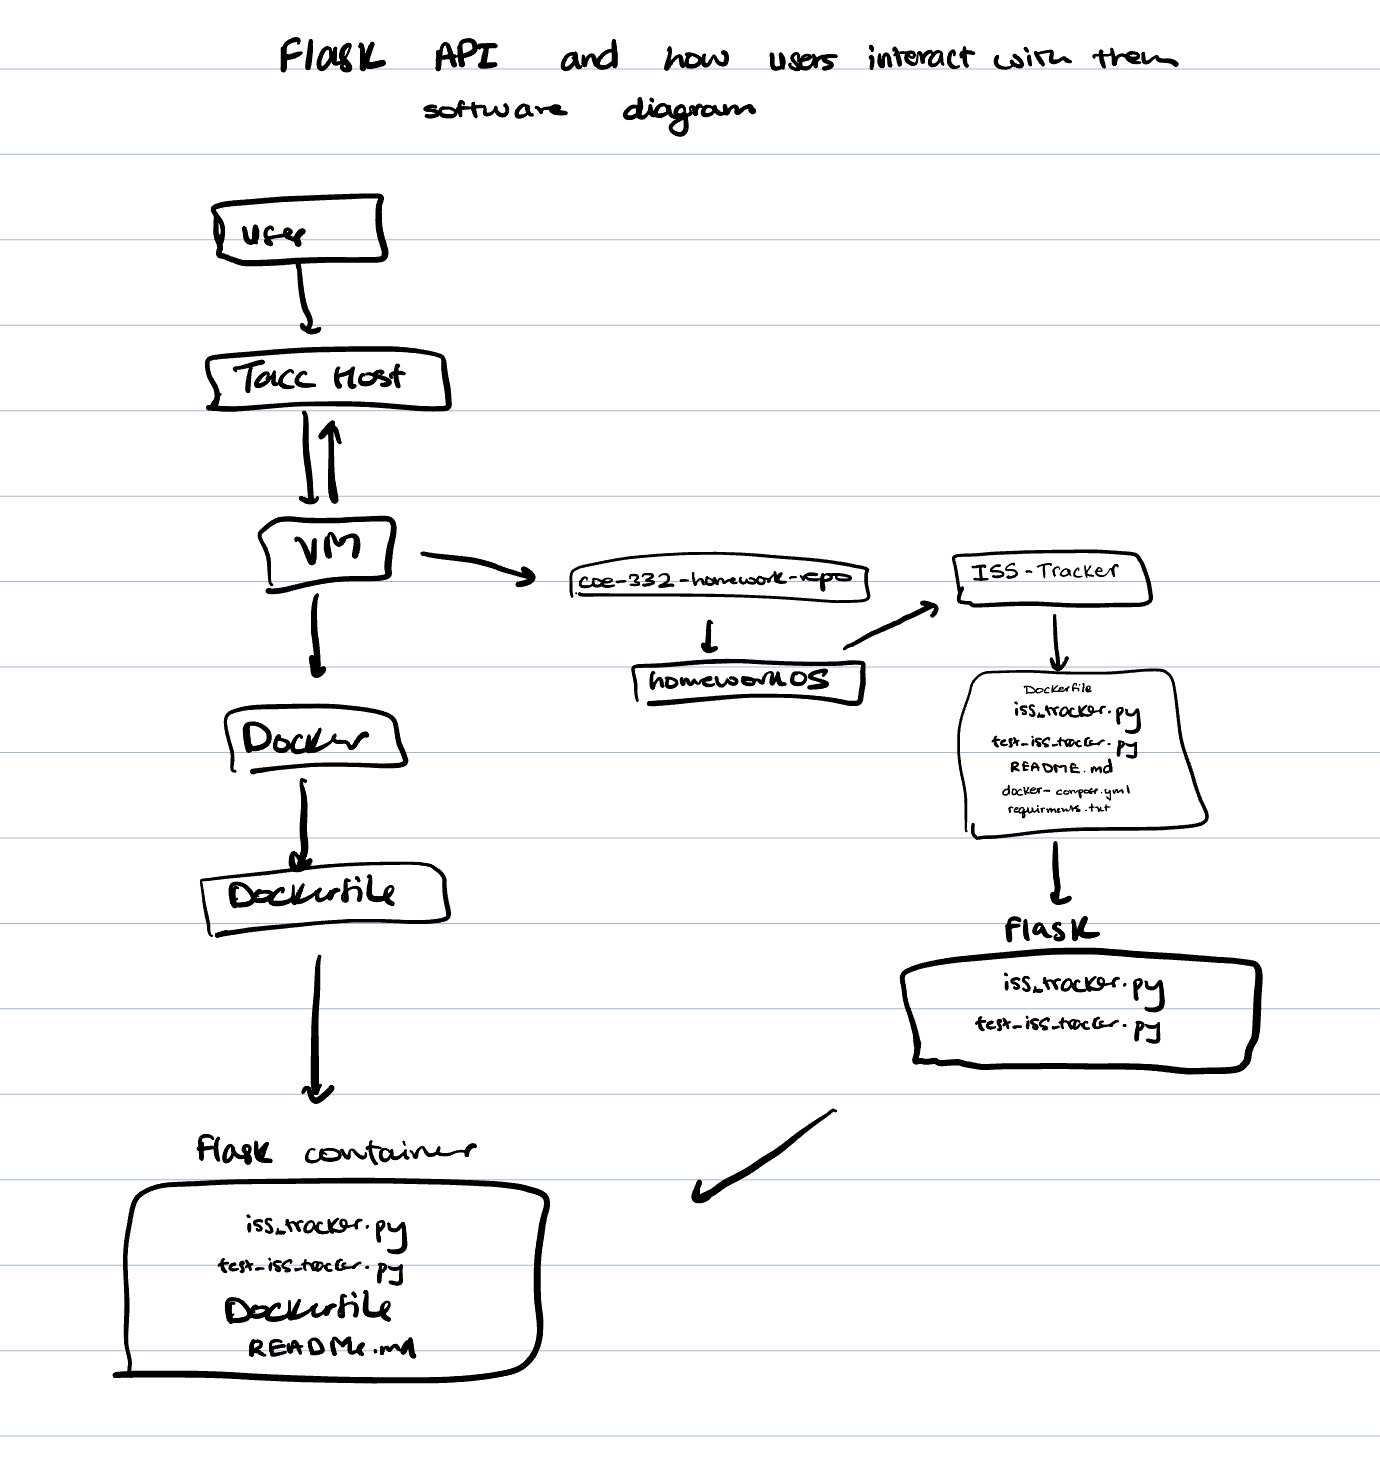 Flask API and how users interact with them
software diagram
user
Tacc Host
VM
coe-332-homework-repo
ISS-Tracker
homework05
Dockerfile
iss_tracker.py
test_iss_tracker.py
README.md
docker-compose.yml
requirments.txt
Docker
Dockerfile
Flask
iss_tracker.py
test_iss_tracker.py
Flask container
iss_tracker.py
test_iss_tracker.py
Dockerfile
README.md